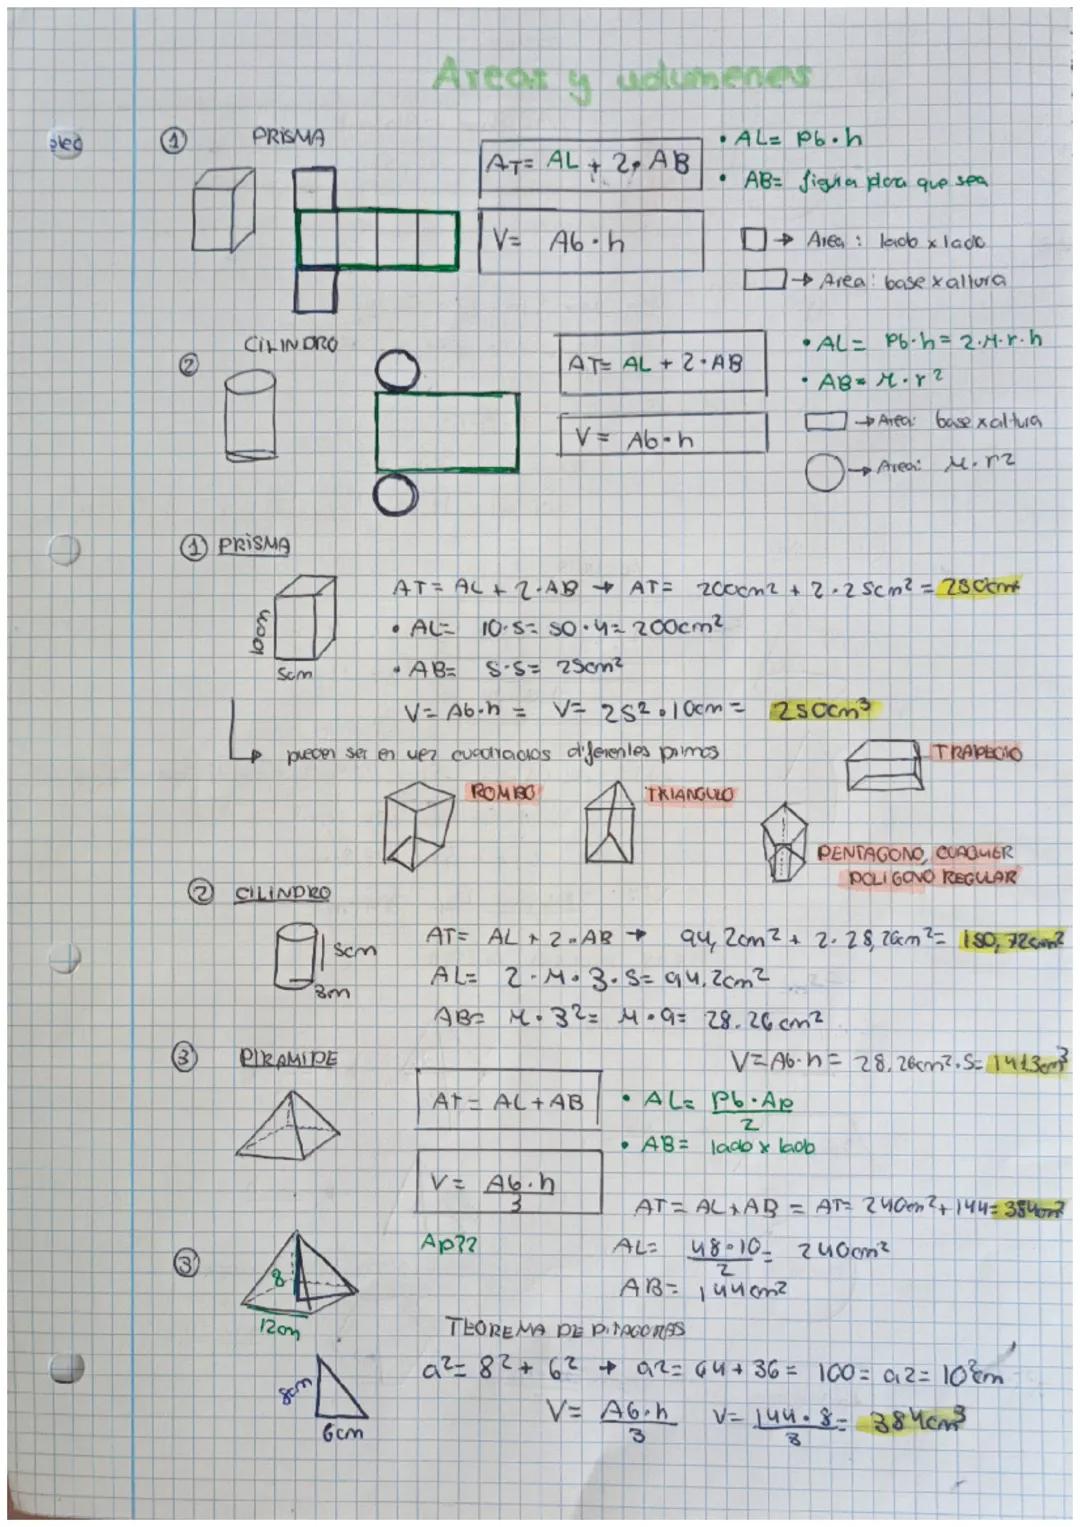 Areas y volumenes
① PRISMA
AT= AL + 2· AB
• AL= Pb·h
• AB= figura plana que sea
V= Ab·h
□→ Area: lado x lado
▭→ Area: base x altura
② CILINDRO
AT= AL + 2·AB
• AL= Pb·h= 2·π·r·h
• AB= π·r²
V= Ab·h
▭→ Area: base x altura
○→ Area: π·r2
① PRISMA
AT= AL + 2·AB → AT= 200cm2 + 2·25cm² = 250cm²
• AL= 10·5= 50·4= 200cm²
10cm
• AB= 5·5= 25cm²
5cm
V= Ab·h = V= 25²·10cm = 250cm³
↳ pueden ser en vez cuadrados diferentes
TRAPECIO
ROMBO
TRIANGULO
PENTAGONO, CUALQUIER
POLIGONO REGULAR
② CILINDRO
AT= AL + 2·AB → 94,2cm² + 2·28,26cm²= 150,72cm²
5cm
AL= 2·π·3·5= 94,2cm²
3m
AB= π·3²= π·9= 28.26cm²
V= Ab·h= 28,26cm²·5= 141,3cm³
③ PIRAMIDE
AT= AL+AB
• AL= Pb·Ap/2
• AB= lado x lado
V= Ab·h/3
AT= AL+AB = AT= 240cm²+144= 384cm²
③
Ap??
AL= 48·10/2= 240cm²
8
AB= 144cm2
12cm
TEOREMA DE PITAGORAS
a²= 8²+ 6² → a2= 64+36= 100= a2= 10²cm
8cm
6cm
V= Ab·h/3 V= 144·8/3= 384cm³